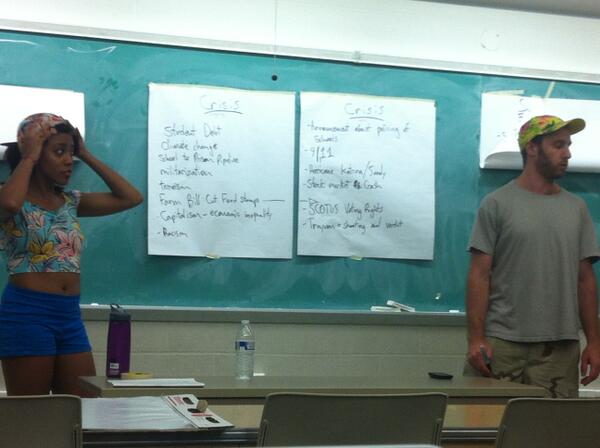 Crisis
Student Debt
climate change
School to Prison Pipeline
militarization
terrorism
Farm Bill Cut Food Stamps
- Capitalism - economic inequality
- Racism
Crisis
Announcement about policing of
Schools
- 9/11
- Hurricane Katrina/Sandy
- Stock market Crash
- SCOTUS Voting Rights
- Trayvon shooting and verdict